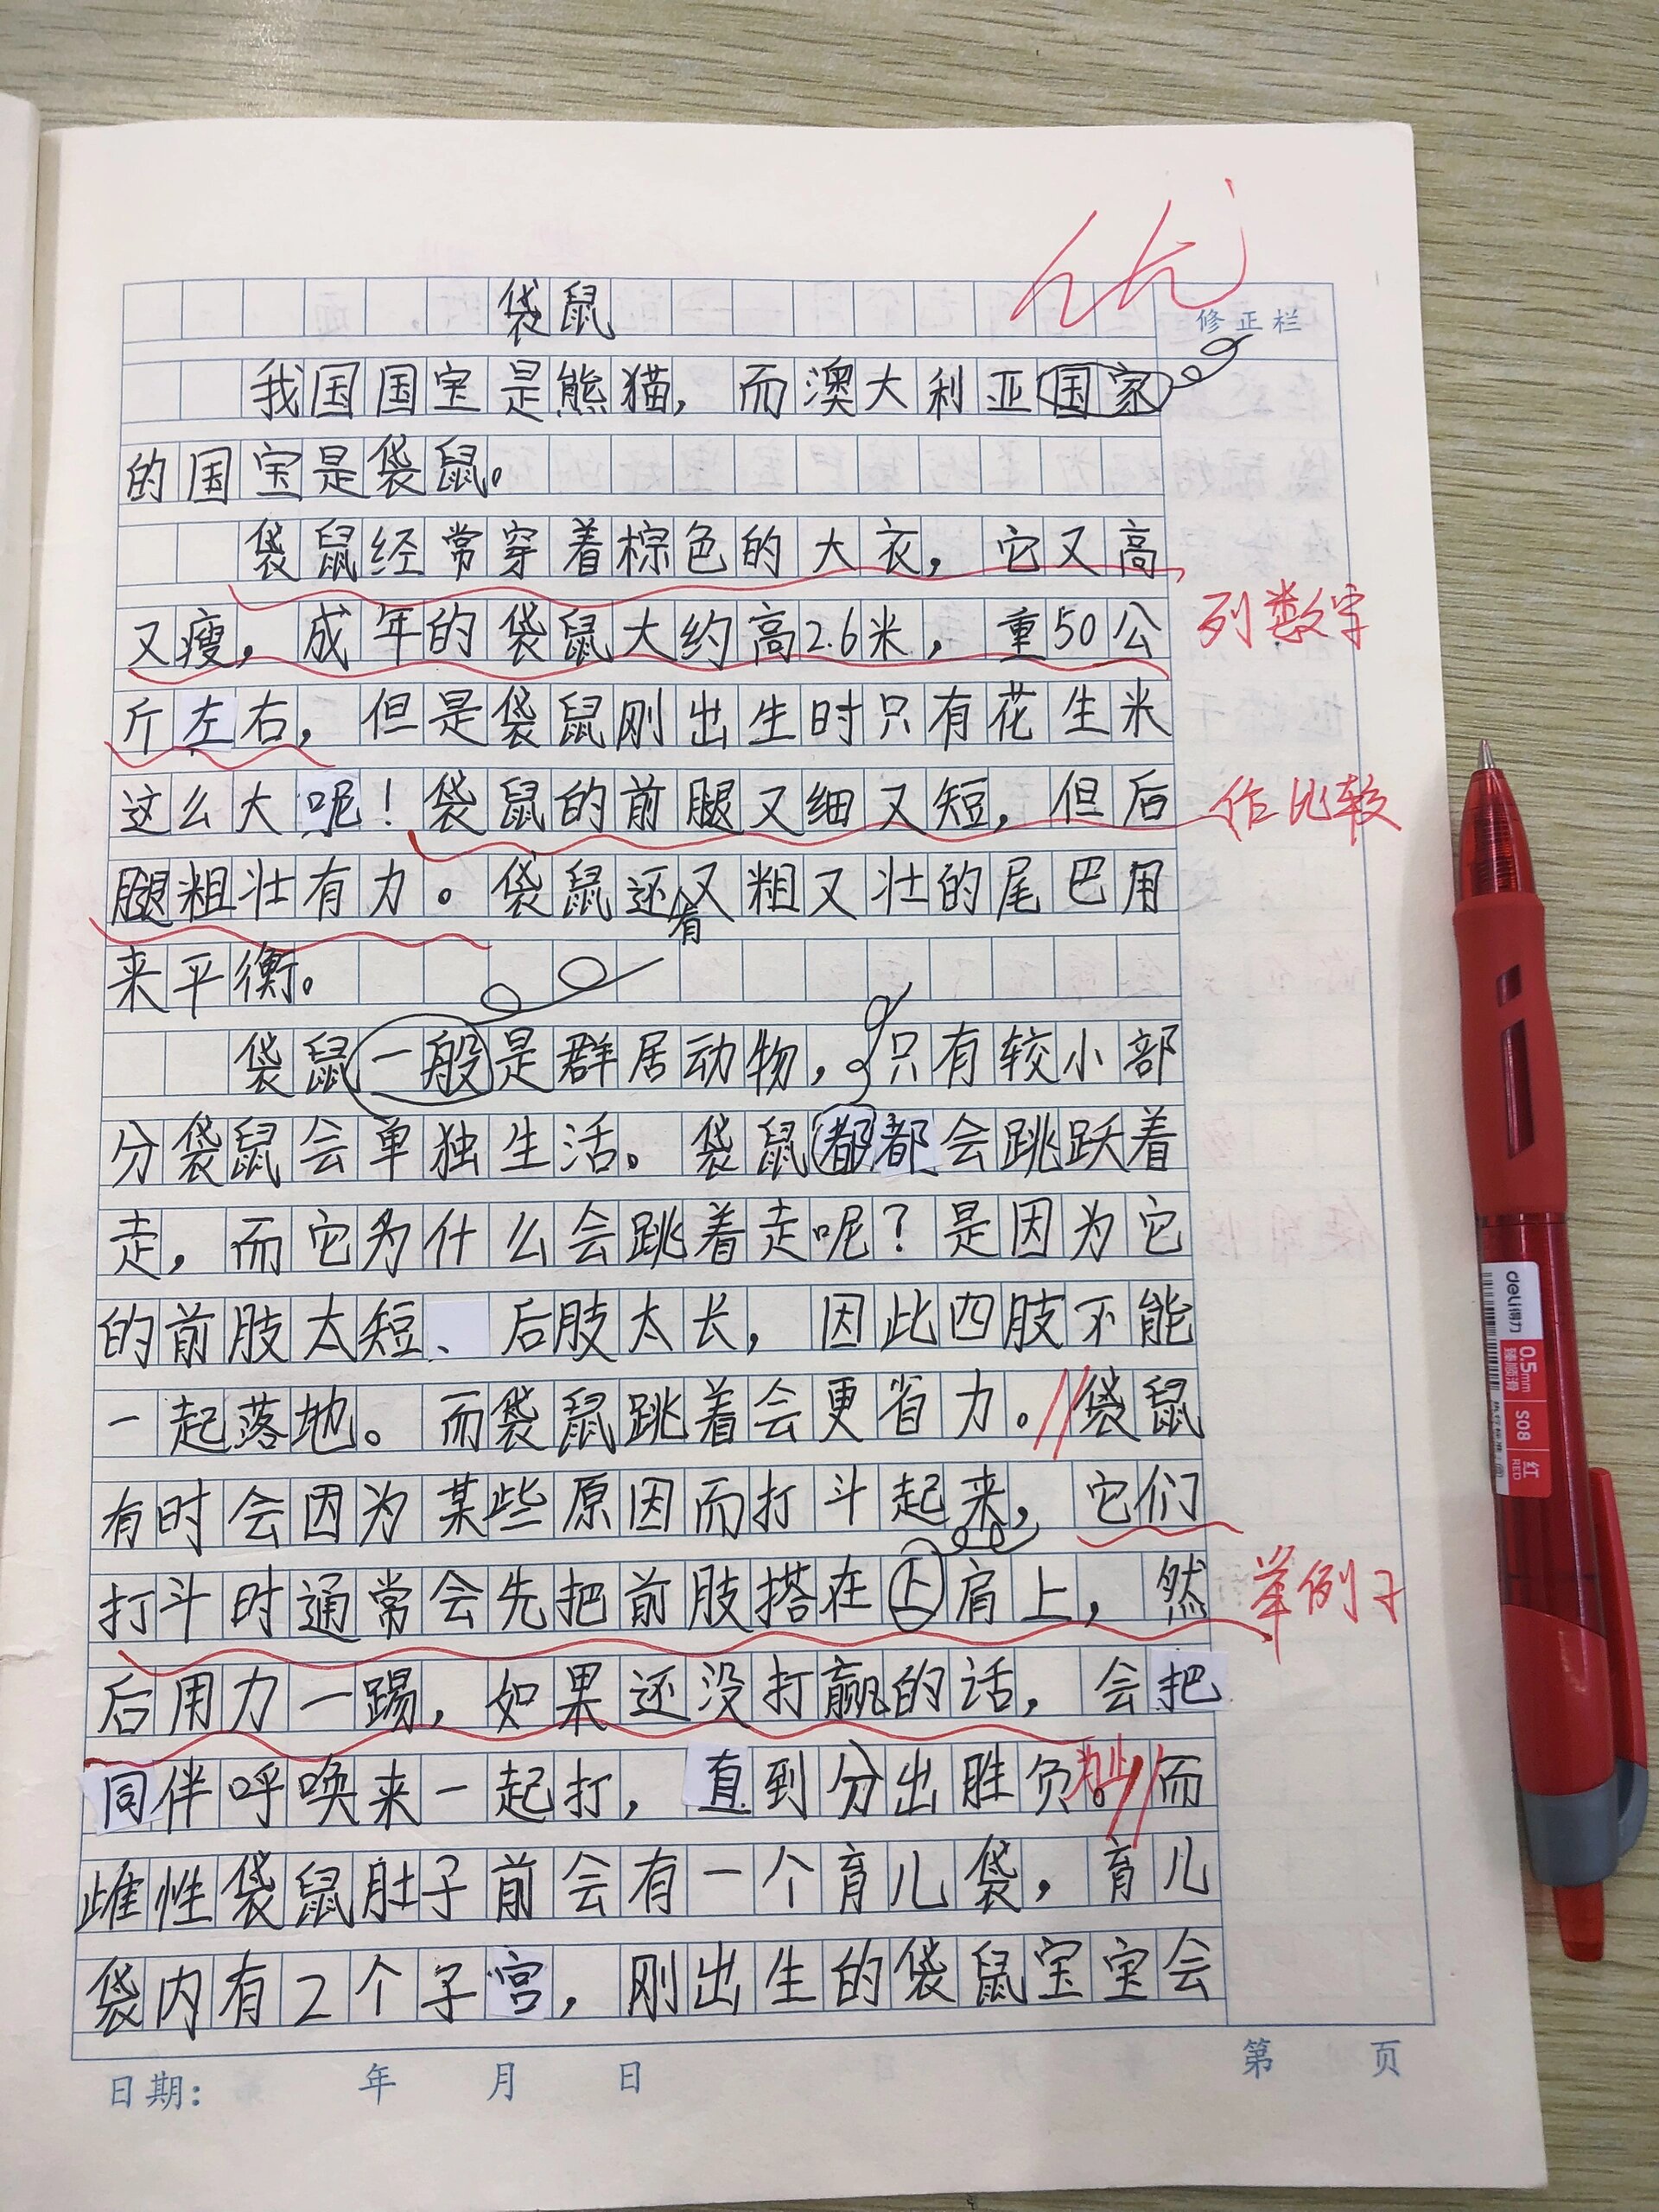 优
袋鼠
修正栏
我国国宝是熊猫，而澳大利亚国家
的国宝是袋鼠。
袋鼠经常穿着棕色的大衣，它又高
又瘦，成年的袋鼠大约高2.6米，重50公
列数字
斤左右，但是袋鼠刚出生时只有花生米
这么大呢！袋鼠的前腿又细又短，但后
作比较
腿粗壮有力。袋鼠还有又粗又壮的尾巴用
来平衡。
袋鼠一般是群居动物，只有较小部
分袋鼠会单独生活。袋鼠都都会跳跃着
走，而它为什么会跳着走呢？是因为它
的前肢太短、后肢太长，因此四肢不能
一起落地。而袋鼠跳着会更省力。//袋鼠
有时会因为某些原因而打斗起来，它们
打斗时通常会先把前肢搭在上肩上，然
举例子
后用力一踢，如果还没打赢的话，会把
同伴呼唤来一起打，直到分出胜负为止。//而
雌性袋鼠肚子前会有一个育儿袋，育儿
袋内有2个子宫，刚出生的袋鼠宝宝会
日期： 年 月 日
第 页
deli得力
0.5mm
臻顺滑
S08
红
RED